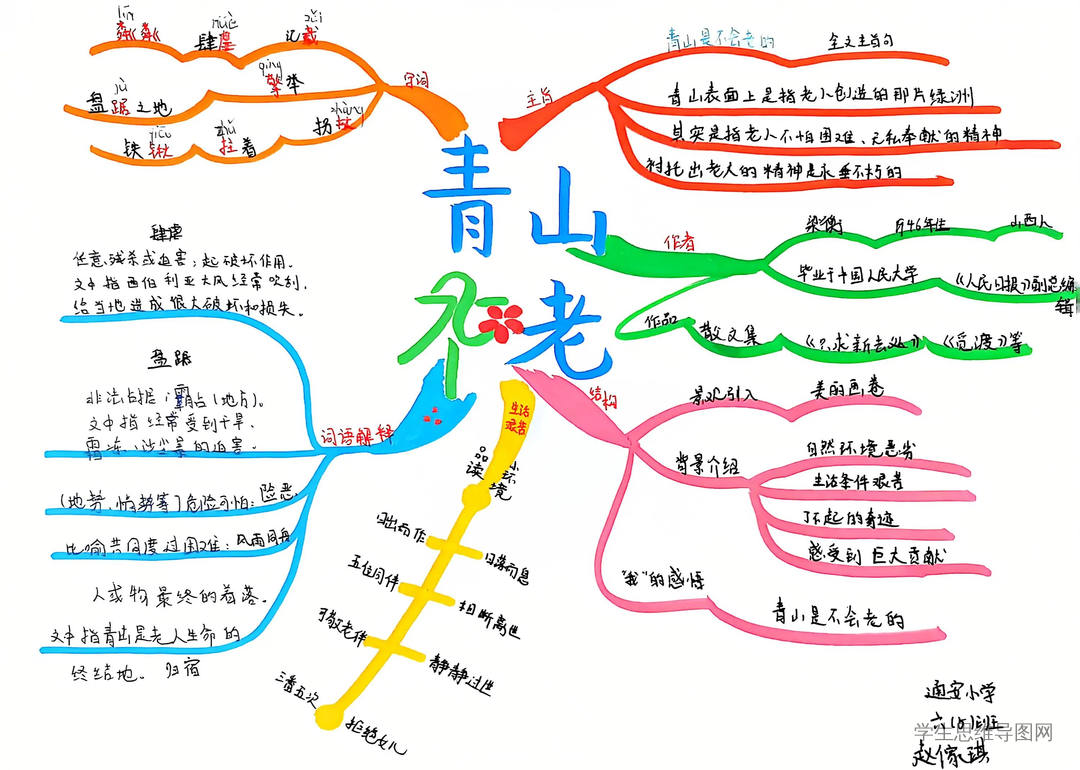 青山不老
字词
lín
粼粼
nüè
肆虐
zǎi
记载
jù
盘踞之地
qíng
擎举
铁锹
zhǔ
拄着
拐杖
主旨
青山是不会老的
全文主旨句
青山表面上是指老人创造的那片绿洲
其实是指老人不怕困难、无私奉献的精神
衬托出老人的精神是永垂不朽的
作者
梁衡
1946年生
山西人
毕业于中国人民大学
《人民日报》副总编辑
作品
散文集
《只求新去处》
《觅渡》等
结构
景观引入
美丽画卷
背景介绍
自然环境恶劣
生活条件艰苦
了不起的奇迹
感受到 巨大贡献
"我"的感悟
青山是不会老的
生活
艰苦
品读
小环境
日出而作
日落而息
五位同伴
相断离世
可敬老伴
静静过世
三番五次
拒绝女儿
词语解释
肆虐
任意残杀或迫害;起破坏作用。
文中指西伯利亚大风经常吹刮,
给当地造成很大破坏和损失。
盘踞
非法占据;霸占(地方)。
文中指经常受到干旱、
霜冻、沙尘暴的迫害。
(地势、情势等)危险可怕:险恶
比喻共同度过困难:风雨同舟
人或物最终的着落。
文中指青山是老人生命的
终结地。 归宿
通安小学
学生思维导图网